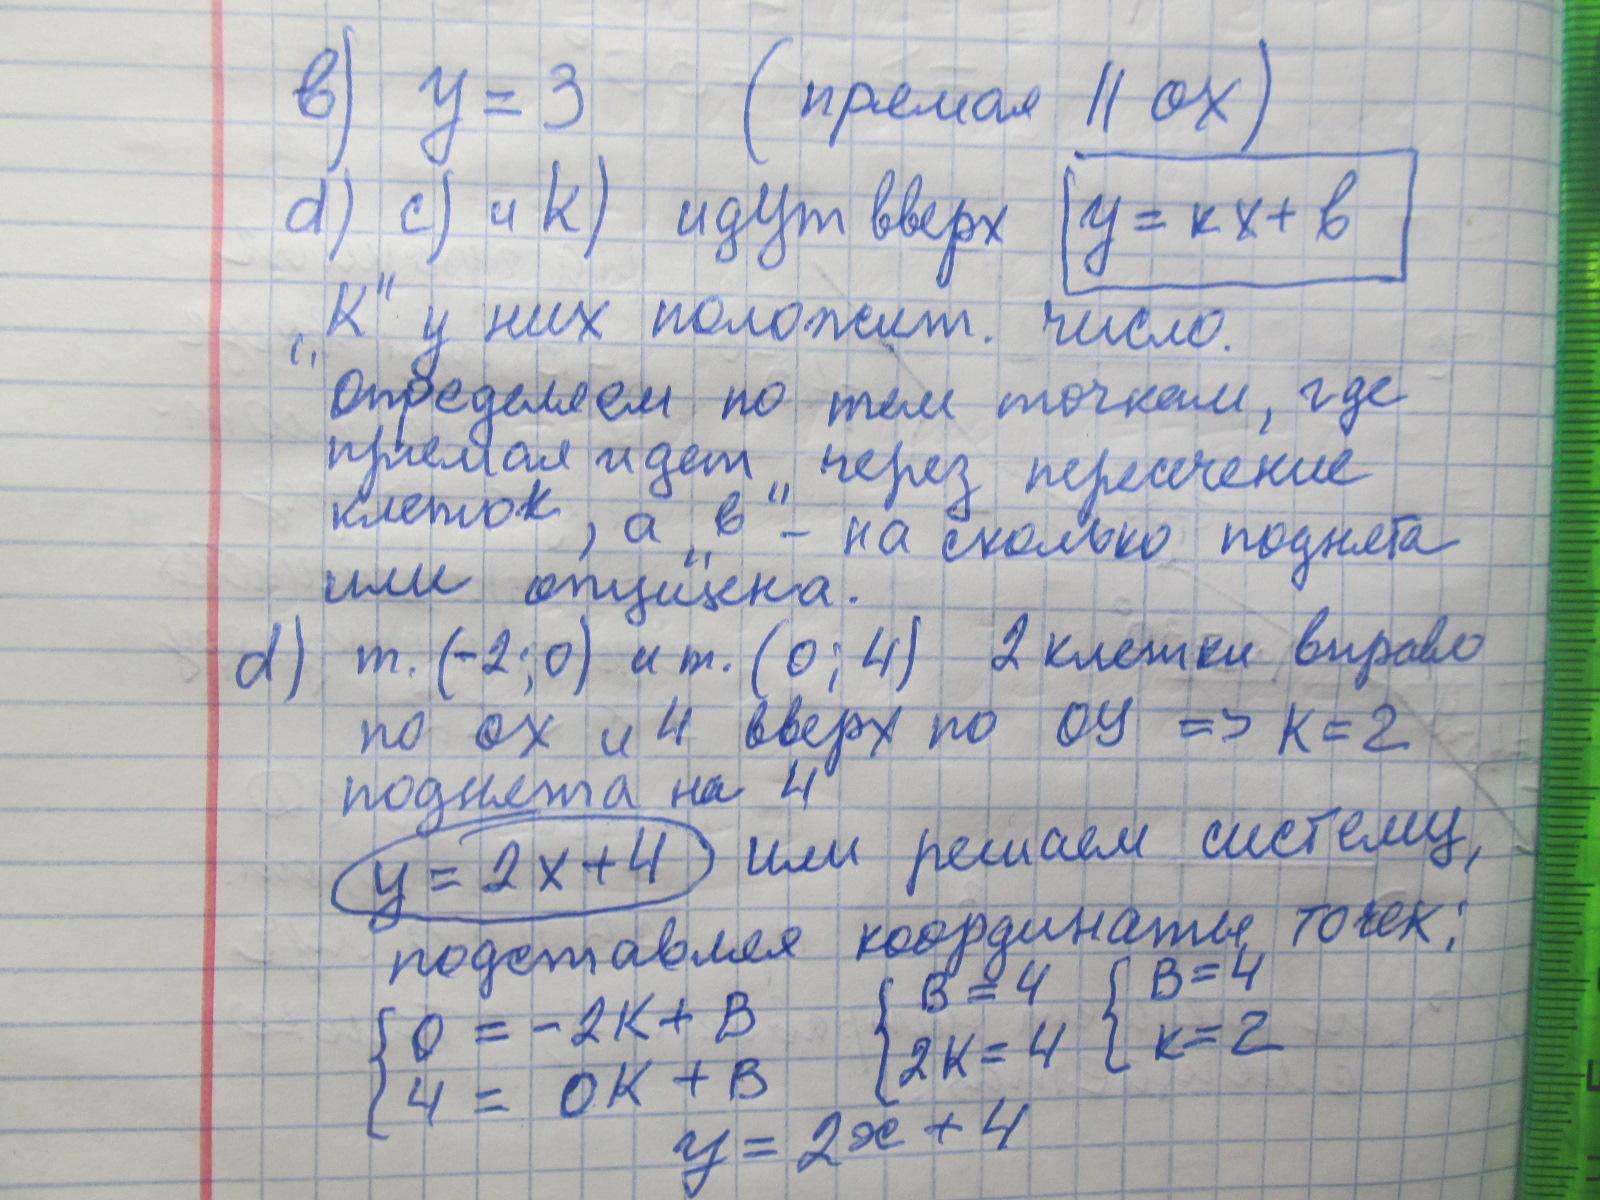 в) y = 3 (прямая || ox)
d) c) и k) идут вверх y = кx + в
„К" у них положит. число.
Определяем по тем точкам, где
прямая идет через пересечение
клеток, а „в" - на сколько поднята
или опущена.
d) т. (-2; 0) и т. (0; 4) 2 клетки вправо
по ox и 4 вверх по ОУ => K = 2
поднята на 4
y = 2x + 4 или решаем систему,
подставляя координаты точек:
{ 0 = -2K + B { B = 4 { B = 4
{ 4 = 0K + B { 2K = 4 { к = 2
y = 2x + 4